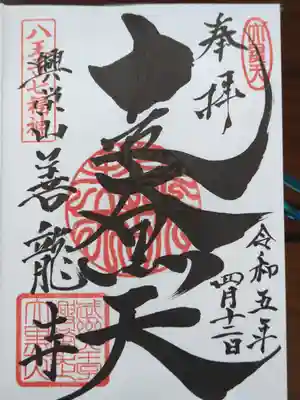 奉拝
大黒天
令和五年
四月十二日
八王子七福神
興栄山善龍寺